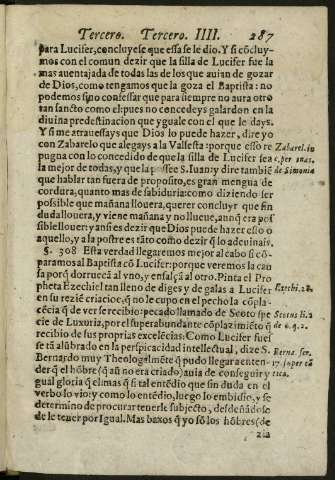 Tercero. Tercero. IIII. 287
para Lucifer, concluyese que essa se le dio. Y si cõcluy-
mos con el comun dezir que la silla de Lucifer fue la
mas auentajada de todas las de los que auian de gozar
de Dios, como tengamos que la goza el Baptista: no
podemos sino confessar que para siempre no aura otro
tan sancto como el: pues no concedeys galardon en la
diuina predestinacion que yguale con el que le days.
Y si me atrauessays que Dios lo puede hazer, dire yo
con Zabarelo que alegays a la Valsesta: porque esso re
pugna con lo concedido de que la silla de Lucifer sea
la mejor de todas, y que la possee S. Iuan: y dire tambiẽ
que hablar tan fuera de proposito, es gran mengua de
cordura, quanto mas de sabiduria: como diziendo ser
possible que mañana llouera, querer concluyr que sin
duda llouera, y viene mañana y no llueue, aunq̃ era pos
sible llouer: y ansi es dezir que Dios puede hazer esso o
aquello, y a la postre es tãto como dezir q̃ lo adeuinais.
§. 308 Esta verdad llegaremos mejor al cabo si cõ-
paramos al Baptista cõ Lucifer: porque veremos la cau
sa porq̃ dorrueca al vno, y ensalça al otro. Pinta el Pro
pheta Ezechiel tan lleno de diges y de galas a Lucifer
en su reziẽ criacioẽ, q̃ no le cupo en el pecho la cõpla-
cẽcia q̃ de ver se recibio: pecado llamado de Scoto spe
cie de Luxuria, por el superabundante cõplazimiẽto q̃
recibio de sus proprias excelẽcias. Como Lucifer fues
se tã alũbrado en la perspicacidad intellectual, dize S.
Bernardo muy Theologalmẽte q̃ pudo llegar a enten-
der q̃ el hõbre (q̃ aũ no era criado) auia de conseguir y
gual gloria q̃ el mas q̃ si tal entẽdio que sin duda en el
verbo lo vio: y como lo entẽdio, luego lo embidio, y se
determino de procurar tenerle subjecto, desdeñãdose
de le tener por Igual. Mas baxos q̃ yo sõ los hõbres (de
zia
Zabarel. in
c. per inas.
de Simonia
Ezechi. 28.
Scotus li. 2
d. 6. q. 2.
Berna. ser.
17. super cã
tica.